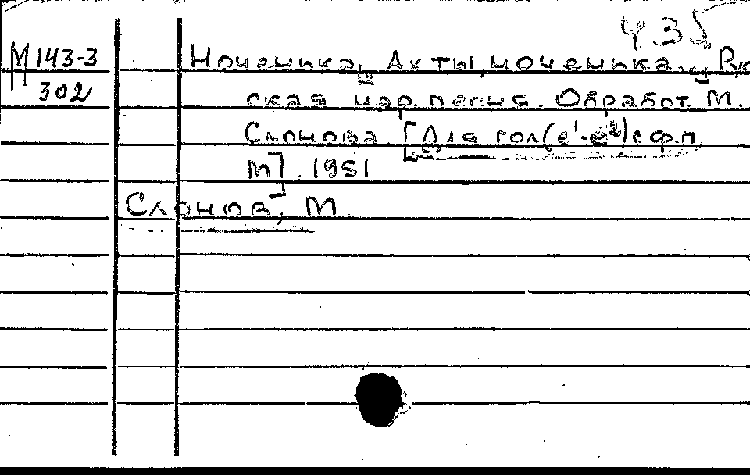 435
М 143-3
302
Ноченька, Ах ты, ноченька. Рус
ская нар. песня. Обработ. М.
Слонова. [Для гол. (е¹-е²) с ф.п.
м]. 1951
Слонов, М.